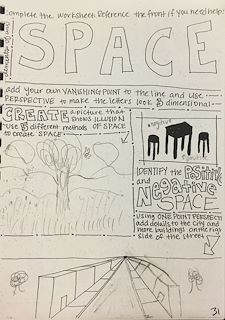 Complete the worksheet. Reference the front if you need help!
SPACE
add your own VANISHING POINT to the line and use
PERSPECTIVE to make the letters look 3 dimensional
CREATE a picture that
shows ILLUSION
of SPACE
use 3 different methods
to create SPACE
negative
positive
IDENTIFY the Positive
and
Negative
SPACE
Using ONE POINT PERSPECTIVE
add details to the city and
more buildings on the right
side of the street.
31